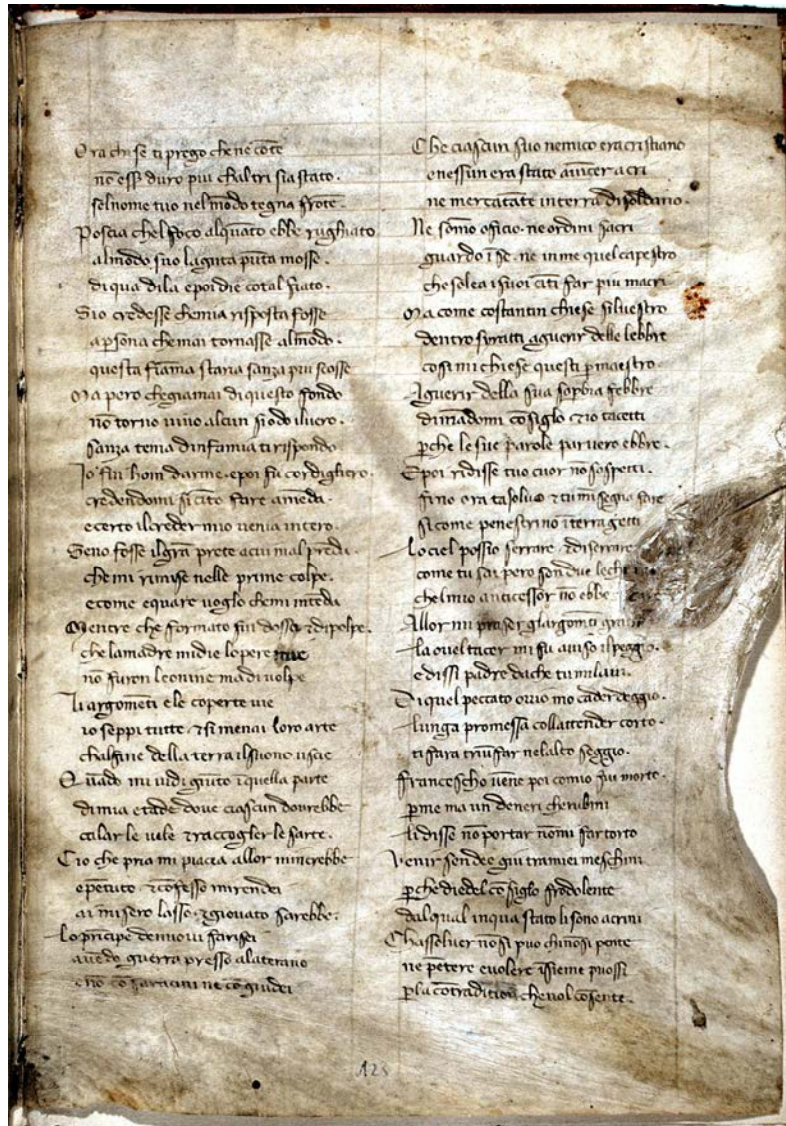 Ora chi se ti prego che ne cōte
nō ess duro piu chaltri sia stato.
sel nome tuo nel mōdo tegna frōte.
Poscia chel foco alquāto ebbe rughiato
al modo suo laguta pūta mosse.
di qua di la e poi die cotal fiato.
Sio credesse che mia risposta fosse
a psona che mai tornasse al mōdo.
questa fiāma staria sanza piu scosse
Ma pero che giamai di questo fondo
nō torno vivo alcun sio do il vero.
sanza tema dinfamia ti rispondo
Io fui hom darme. e poi fu cordigliero.
credendomi si cīto fare amēda.
e certo il creder mio venia intero.
Seno fosse il grā prete a cui mal prēda.
che mi rimise nelle prime colpe.
e come e quare voglo che mi intēda
Mentre che formato fui dossa & di polpe.
che la madre mi die lopere mie
nō furon leonine ma di volpe
li argomēti e le coperte vie
io seppi tutte. & si menai loro arte
chal fine della terra il suono uscie
Quādo mi vidi giūto ī quella parte
di mia etade dove ciascun dovrebbe
calar le vele & raccogler le sarte.
Cio che pria mi piacea allor mincrebbe
e pētuto & cōfesso mi rendei
ai misero lasso. & giovato sarebbe.
Lo prīcipe de nuovi farisei
avēdo guerra presso a laterano
e nō cō saracini ne cō giudei
Che ciascun suo nemico era cristiano
e nessun era stato a vīcer acri
ne mercatāte in terra di soldano.
Ne sōmo oficio. ne ordini sacri
guardo ī se. ne in me quel capestro
che solea i suoi cīti far piu macri
Ma come costantin chiese silvestro
dentro syratti a guerir delle lebbre
cosi mi chiese questi p maestro.
A guerir della sua sopbia febbre
dimādomi cōsiglo & io tacetti
pche le sue parole parvero ebbre.
E poi ridisse tuo cuor nō sospetti.
fino ora tasolvo & tu minsegna fare
si come penestrino ī terra getti
Lo ciel possio serrare. & diserrare
come tu sai pero son due le
chel mio anticessor nō ebbe
Allor mi pinser gl argomēti gravi
la vel tacer mi fu aviso il peggio.
e dissi padre da che tu mi lavi.
Di quel peccato ovio mo cader deggio.
lunga promessa coll attender corto.
ti fara triūfar nel alto seggio.
Francescho vēne poi comio fui morto.
p me ma un de neri cherubini
li disse nō portar nō mi far torto
Venir sen dee giu tra miei meschini
pche diedel cōsiglo frodolente
dal qual in qua stato li sono a crini
Chassolver nō si puo chi nō si pente
ne pētere e volere īsieme puossi
p la cōtradition che nol cōsente.
125